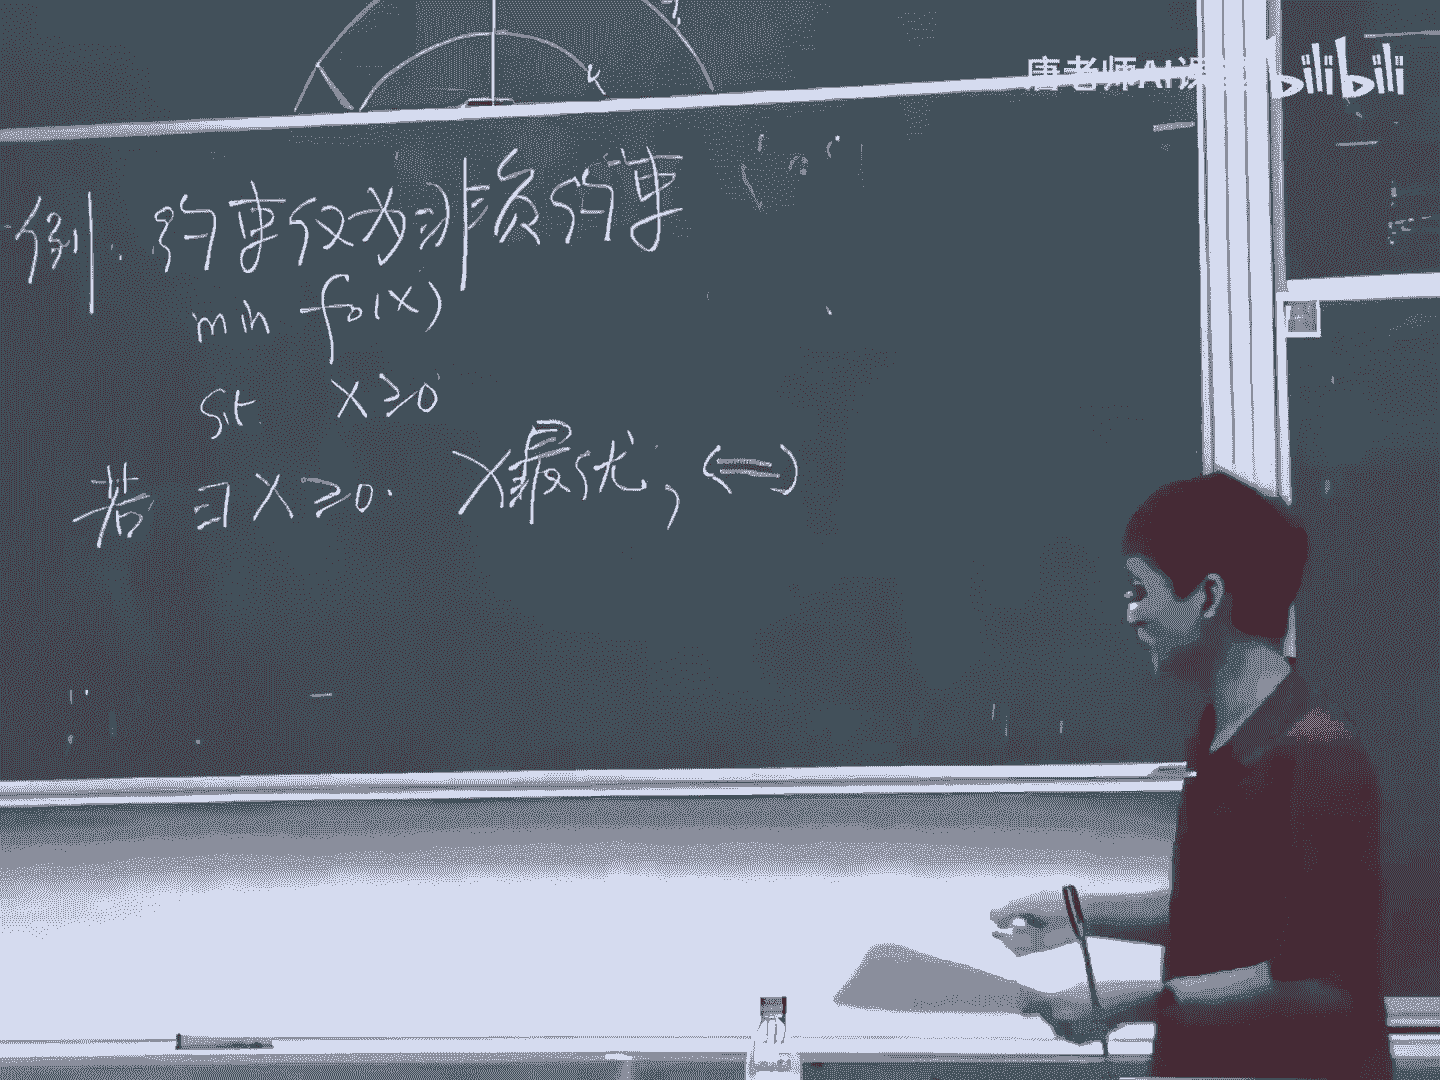 唐老师AI课 bilibili
例: 约束仅为非负约束
min f₀(x)
s.t. x≥0
若 ∃x≥0. x最优, ⟺